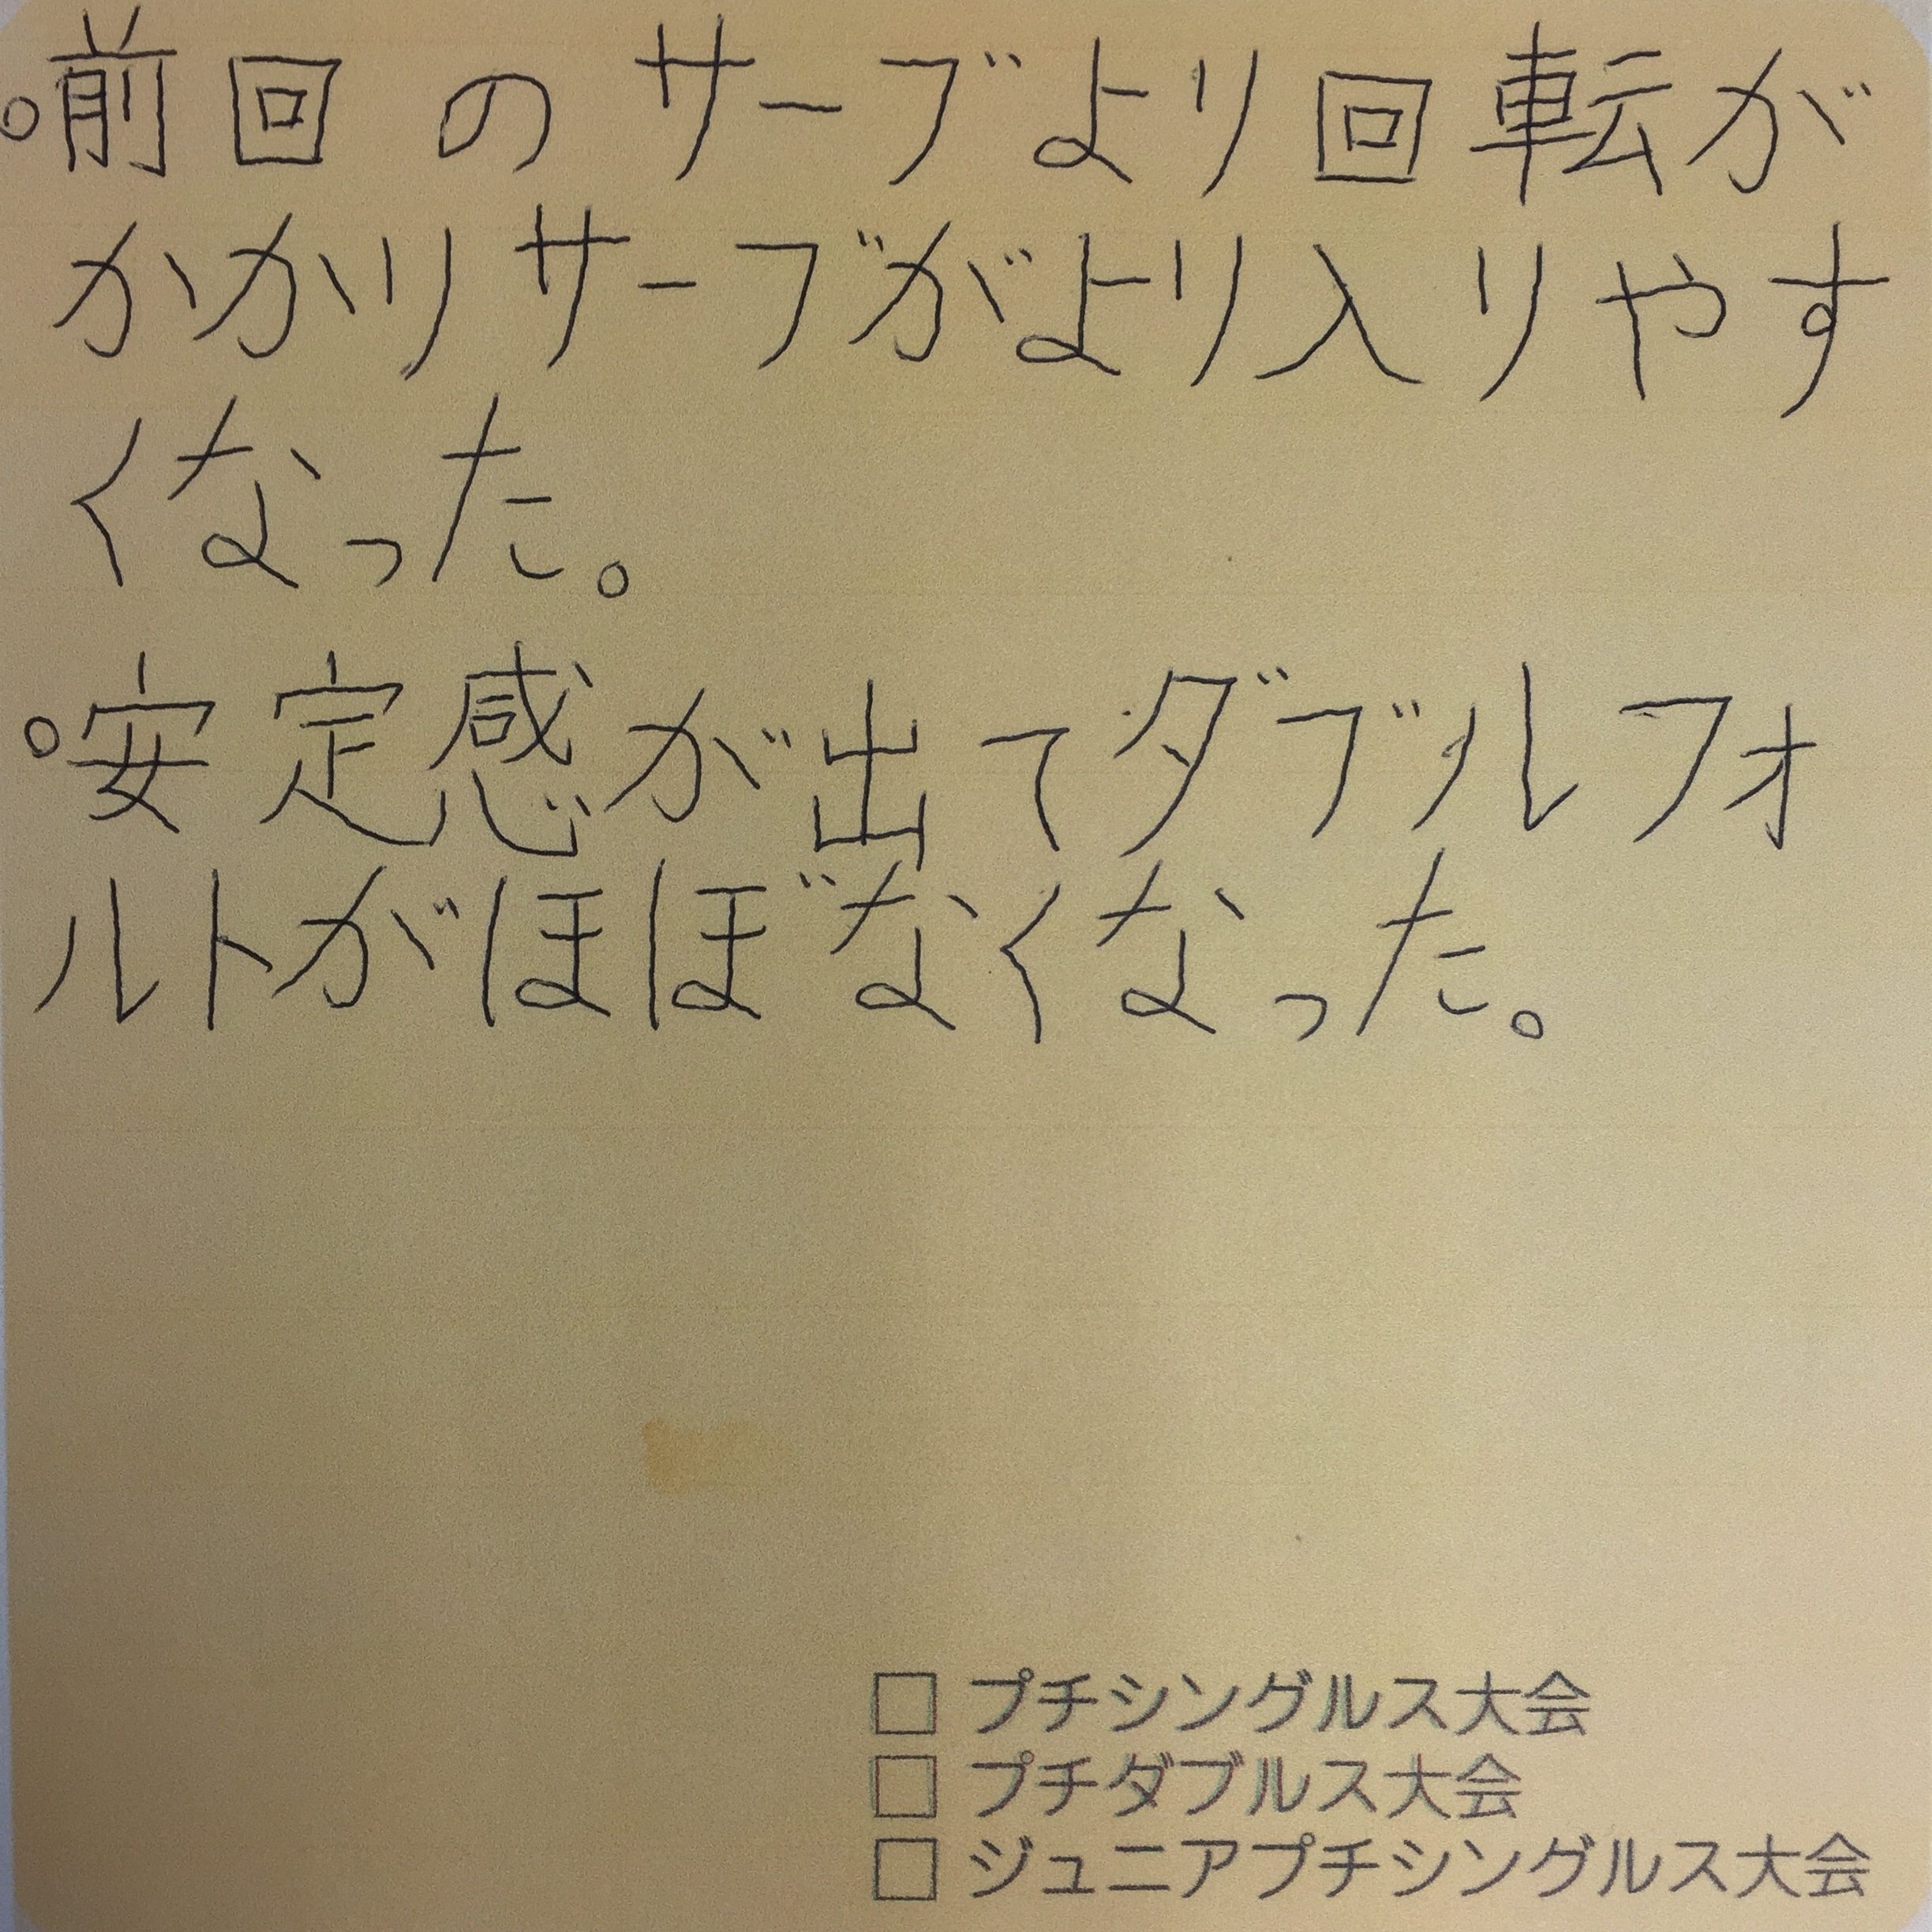 ○前回のサーブより回転が
かかりサーブがより入りやす
くなった。
○安定感が出てダブルフォ
ルトがほぼなくなった。
□ プチシングルス大会
□ プチダブルス大会
□ ジュニアプチシングルス大会